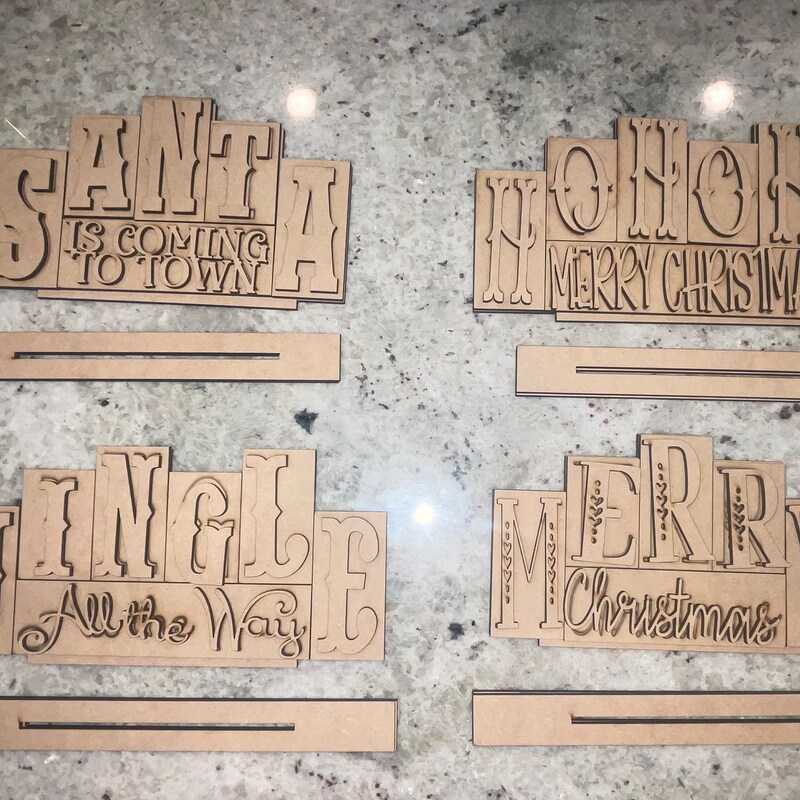 SANTA
IS COMING
TO TOWN
HOHOH
MERRY CHRISTMA
JINGLE
All the Way
MERRY
Christmas